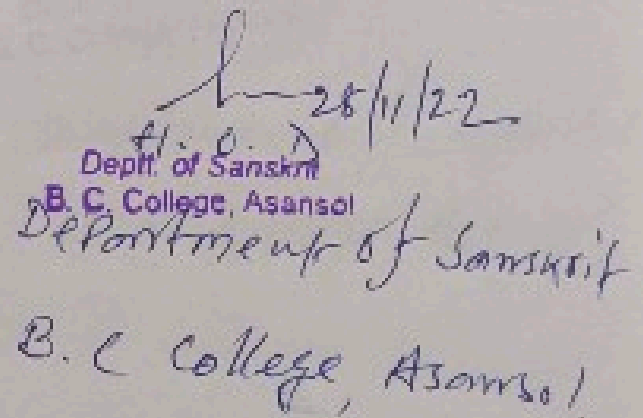 28/11/22
H. O. D
Deptt. of Sanskrit
B. C. College, Asansol
Department of Sanskrit
B. C College, Asansol